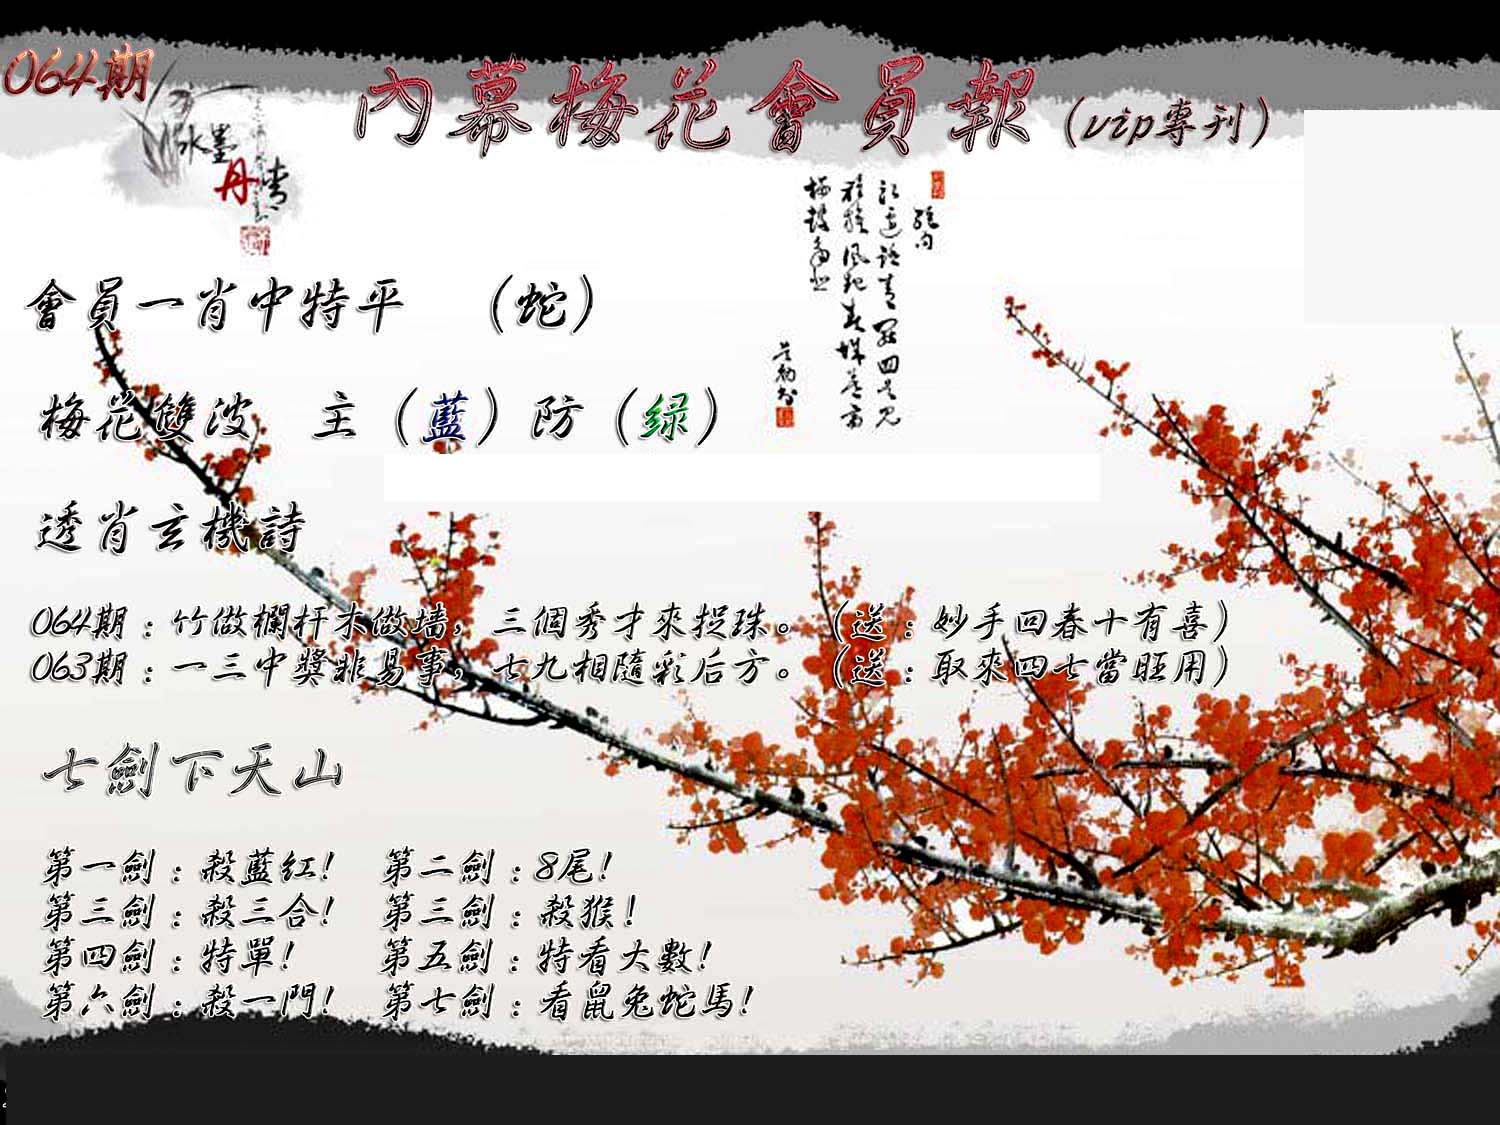 064期
內幕梅花會員報(vip專刊)
水墨
丹青
絕句
會員一肖中特平 (蛇)
梅花雙波 主(藍)防(绿)
透肖玄機詩
064期:竹做欄杆木做墙,三個秀才來捉珠。(送:妙手回春十有喜)
063期:一三中獎非易事,七九相隨彩后方。(送:取來四七當旺用)
七劍下天山
第一劍:殺藍红! 第二劍:8尾!
第三劍:殺三合! 第三劍:殺猴!
第四劍:特單! 第五劍:特看大數!
第六劍:殺一門! 第七劍:看鼠兔蛇馬!